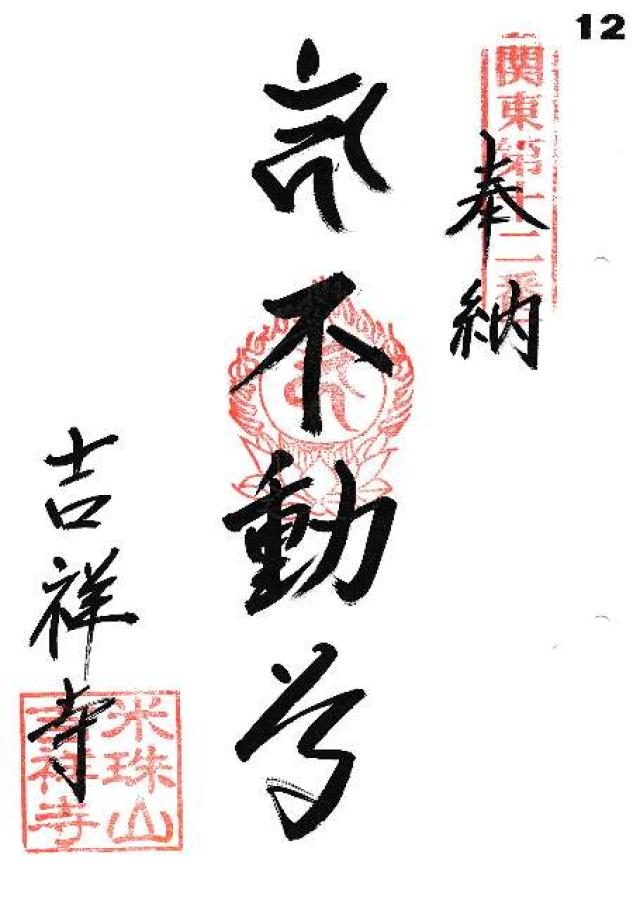 12
関東第十二番
奉納
不動尊
吉祥寺
米珠山
吉祥寺